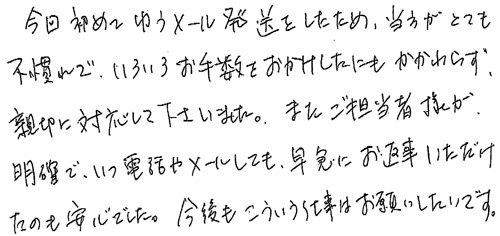 今回初めてゆうメール発送をしたため、当方がとても
不慣れで、いろいろお手数をおかけしたにもかかわらず、
親切に対応して下さいました。またご担当者様が、
明確で、いつ電話やメールしても、早急にお返事いただけ
たのも安心でした。今後もこういう仕事はお願いしたいです。